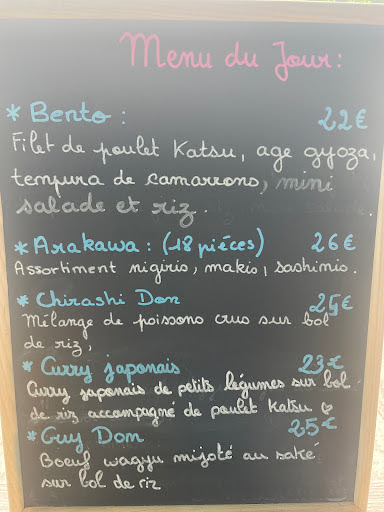 Menu du Jour :
* Bento : 22€
Filet de poulet Katsu, age gyoza,
tempura de camarrons, mini
salade et riz.
* Arakawa : (18 pièces) 26€
Assortiment nigiris, makis, sashimis.
* Chirashi Don 25€
Mélange de poissons crus sur bol
de riz,
* Curry japonais 23€
Curry japonais de petits légumes sur bol
de riz accompagné de poulet Katsu
* Guy Dom 25€
Boeuf wagyu mijoté au saké
sur bol de riz